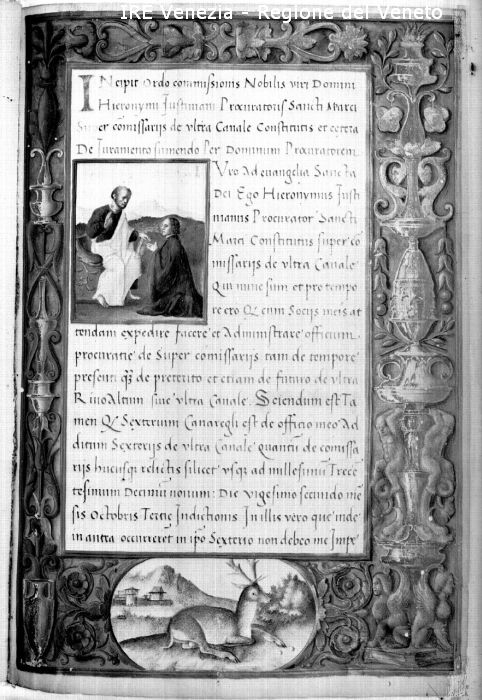 IRE Venezia - Regione del Veneto
INcipit Ordo commissionis Nobilis viri Domini
Hieronymi Justiniani Procuratoris Sancti Marci
Super comissarijs de vltra Canale Constitutis et cetera
De Juramento sumendo Per Dominum Procuratorem
Vro Ad euangelia Sancta
Dei Ego Hieronymus Justi
nianus Procurator Sancti
Marci Constitutus super co
missarijs de vltra Canale
Qui nunc sum et pro tempo
re ero Q cum Socijs meis at
tendam expedire facere et Administrare officium
procuratie de Super comissarijs tam de tempore
presenti q de preterito et etiam de futuro de vltra
RiuoAltum siue vltra Canale. Sciendum est Ta
men Q Sexterium Canaregli est de officio meo Ad
ditum Sexterijs de vltra Canale quantum de comissa
rijs hucusq relictis silicet vsq ad millesimum Trece
tesimum Decimum nonum: Die vigesimo secundo me
sis Octobris Tertie Indictionis In illis vero que inde
in antea occurreret in ipo Sexterio non debeo me Impe